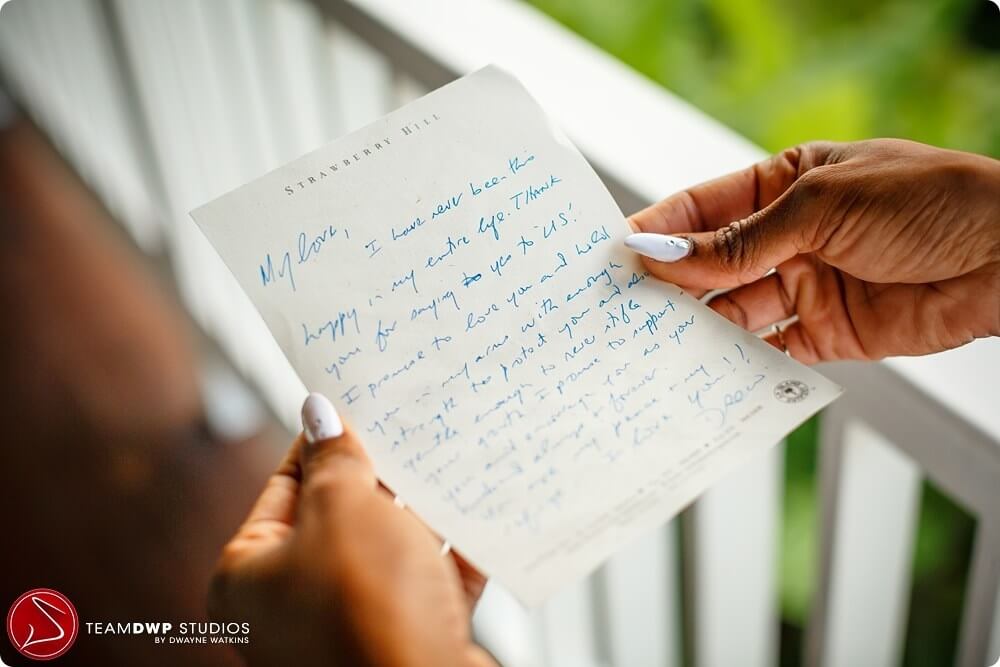 STRAWBERRY HILL
My love,
I have never been this
happy in my entire life. THANK
you for saying yes to 'US'.
I promise to love you and hold
you in my arms with enough
strength to protect you and also
gentle enough to never stifle
your growth. I promise to support
you and encourage you as your
husband always & forever.
You are my peace in my
I love you!!
Drew
TEAMDWP STUDIOS
BY DWAYNE WATKINS